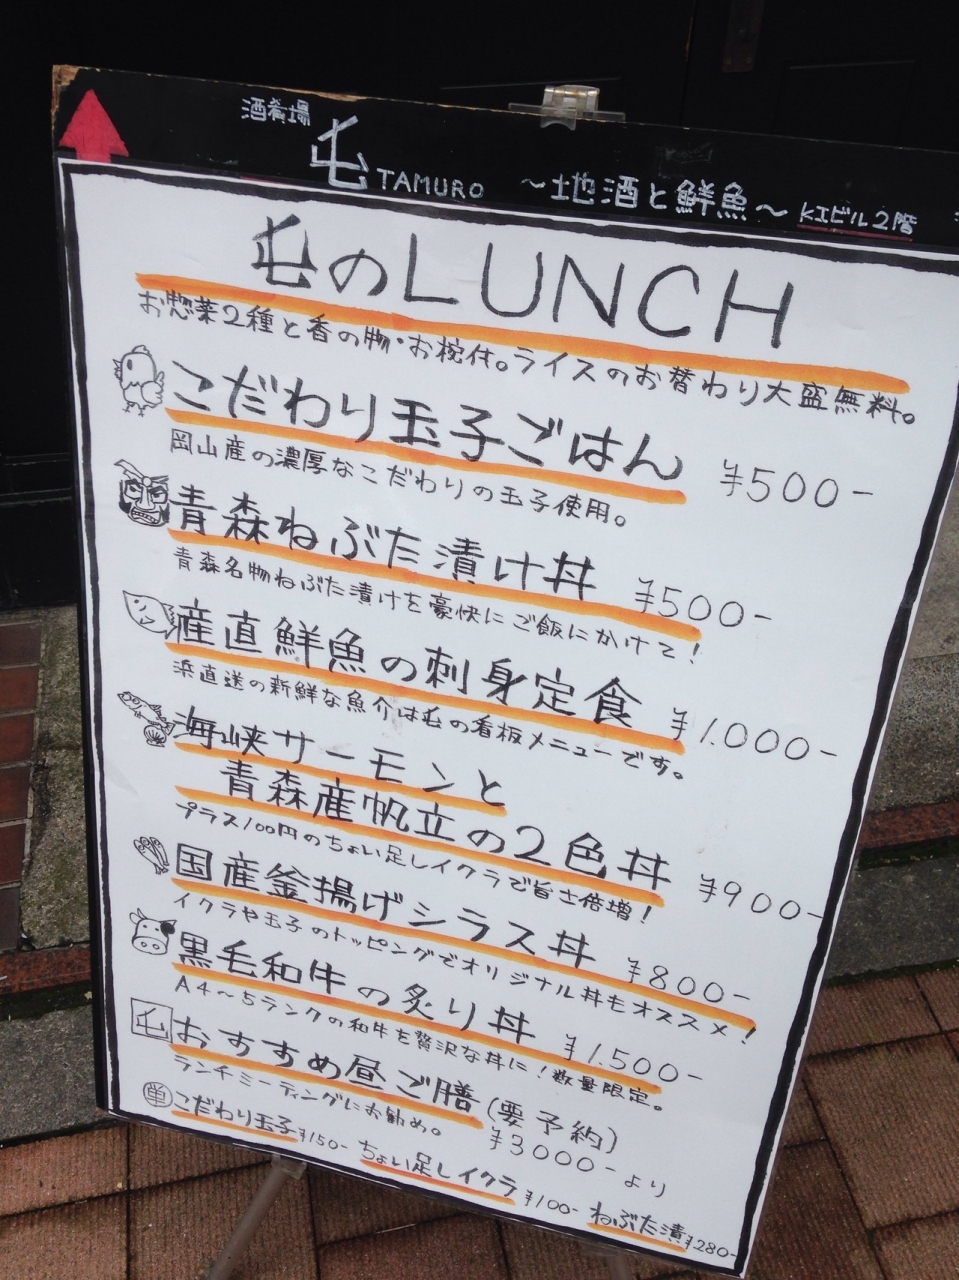 酒肴場 屯 TAMURO 〜地酒と鮮魚〜 KIビル2階
屯のLUNCH
お惣菜2種と香の物・お椀付。ライスのお替わり大盛無料。
こだわり玉子ごはん ¥500-
岡山産の濃厚なこだわりの玉子使用。
青森ねぶた漬け丼 ¥500-
青森名物ねぶた漬けを豪快にご飯にかけて!
産直鮮魚の刺身定食 ¥1,000-
浜直送の新鮮な魚介は屯の看板メニューです。
海峡サーモンと
青森産帆立の2色丼 ¥900-
プラス100円のちょい足しイクラで旨さ倍増!
国産釜揚げシラス丼 ¥800-
イクラや玉子のトッピングでオリジナル丼もオススメ!
黒毛和牛の炙り丼 ¥1,500-
A4〜5ランクの和牛を贅沢な丼に!数量限定。
屯 おすすめ昼ご膳 (要予約)
ランチミーティングにお勧め。 ¥3000-より
単 こだわり玉子 ¥150- ちょい足しイクラ ¥100- ねぶた漬 ¥280-